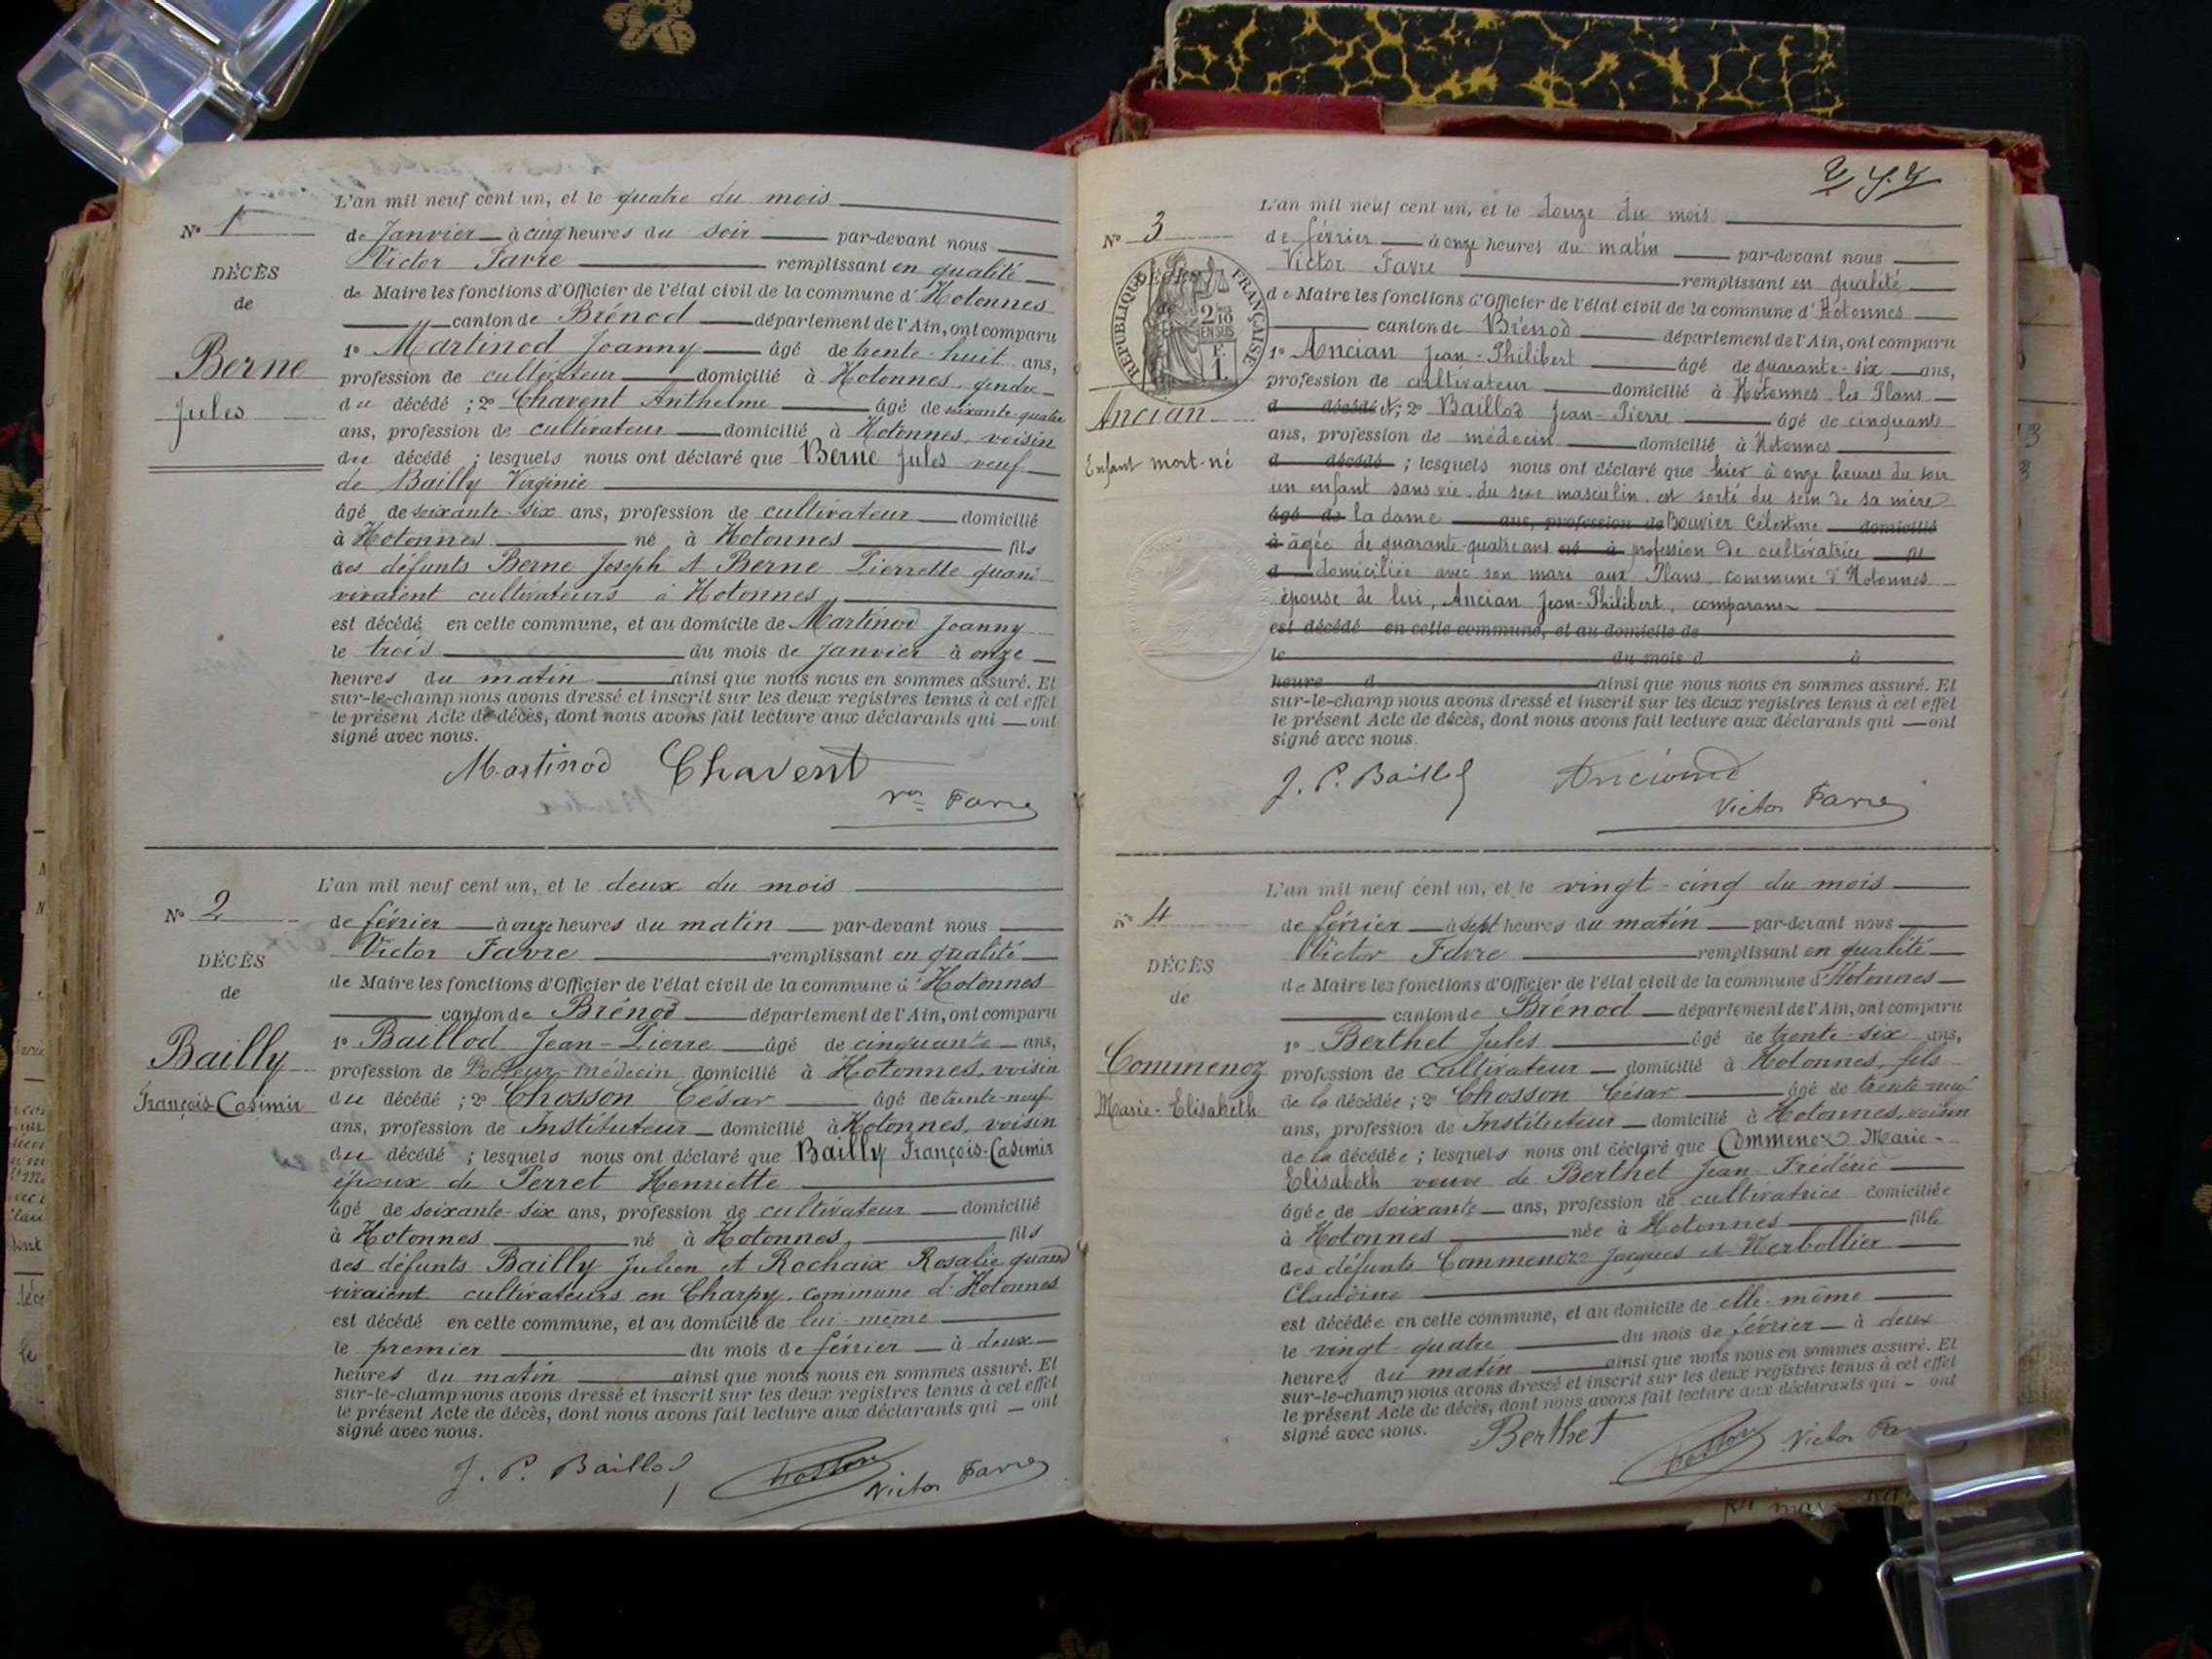 L'an mil neuf cent un, et le quatre du mois
N° 1
de Janvier à cinq heures du soir par-devant nous
Victor Favre remplissant en qualité
DÉCÈS
de Maire les fonctions d'Officier de l'état civil de la commune d'Hotonnes
de
canton de Brénod département de l'Ain, ont comparu
1° Martinod Joanny âgé de trente-huit ans,
Berne
profession de cultivateur domicilié à Hotonnes, gendre
du décédé ; 2° Chavent Anthelme âgé de soixante-quatre
Jules
ans, profession de cultivateur domicilié à Hotonnes, voisin
du décédé ; lesquels nous ont déclaré que Berne Jules veuf
de Bailly Virginie
âgé de soixante-six ans, profession de cultivateur domicilié
à Hotonnes né à Hotonnes fils
des défunts Berne Joseph et Berne Pierrette quand
vivaient cultivateurs à Hotonnes,
est décédé en cette commune, et au domicile de Martinod Joanny
le trois du mois de Janvier à onze
heures du matin ainsi que nous nous en sommes assuré. Et
sur-le-champ nous avons dressé et inscrit sur les deux registres tenus à cet effet
le présent Acte de décès, dont nous avons fait lecture aux déclarants qui ont
signé avec nous.
Martinod Chavent
Vor Favre
L'an mil neuf cent un, et le deux du mois
N° 2
de février à onze heures du matin par-devant nous
Victor Favre remplissant en qualité
DÉCÈS
de Maire les fonctions d'Officier de l'état civil de la commune d'Hotonnes
de
canton de Brénod département de l'Ain, ont comparu
1° Baillod Jean-Pierre âgé de cinquante ans,
Bailly
profession de Docteur-médecin domicilié à Hotonnes, voisin
du décédé ; 2° Chosson César âgé de trente-neuf
François-Casimir
ans, profession de Instituteur domicilié à Hotonnes, voisin
du décédé ; lesquels nous ont déclaré que Bailly François-Casimir
époux de Perret Henriette
âgé de soixante-six ans, profession de cultivateur domicilié
à Hotonnes né à Hotonnes, fils
des défunts Bailly Julien et Rochaix Rosalie quand
vivaient cultivateurs en Charpy, commune d'Hotonnes
est décédé en cette commune, et au domicile de lui-même
le premier du mois de février à deux
heures du matin ainsi que nous nous en sommes assuré. Et
sur-le-champ nous avons dressé et inscrit sur les deux registres tenus à cet effet
le présent Acte de décès, dont nous avons fait lecture aux déclarants qui ont
signé avec nous.
J. P. Baillod Chosson Victor Favre
L'an mil neuf cent un, et le douze du mois
N° 3
de février à onze heures du matin par-devant nous
Victor Favre remplissant en qualité
RÉPUBLIQUE FRANÇAISE
2/10 EN SUS
F. 1.
de Maire les fonctions d'Officier de l'état civil de la commune d'Hotonnes
canton de Brénod département de l'Ain, ont comparu
1° Ancian Jean-Philibert âgé de quarante-six ans,
profession de cultivateur domicilié à Hotonnes les Plans
Ancian
d décédé et; 2° Baillod Jean-Pierre âgé de cinquante
ans, profession de médecin domicilié à Hotonnes
Enfant mort-né
d décédé ; lesquels nous ont déclaré que hier à onze heures du soir
un enfant sans vie du sexe masculin est sorti du sein de sa mère
âgé de la dame ans, profession de Bouvier Célestine domicilié
à âgée de quarante-quatre ans né à profession de cultivatrice fil
d domiciliée avec son mari aux Plans, commune d'Hotonnes
épouse de lui, Ancian Jean-Philibert, comparant
est décédé en cette commune, et au domicile de
le du mois d à
heure d ainsi que nous nous en sommes assuré. Et
sur-le-champ nous avons dressé et inscrit sur les deux registres tenus à cet effet
le présent Acte de décès, dont nous avons fait lecture aux déclarants qui ont
signé avec nous.
J. P. Baillod
Victor Favre
L'an mil neuf cent un, et le vingt-cinq du mois
N° 4
de février à sept heures du matin par-devant nous
Victor Favre remplissant en qualité
DÉCÈS
de Maire les fonctions d'Officier de l'état civil de la commune d'Hotonnes
de
canton de Brénod département de l'Ain, ont comparu
1° Berthet Jules âgé de trente-six ans,
Commenoz
profession de cultivateur domicilié à Hotonnes, fils
de la décédée ; 2° Chosson César âgé de trente-neuf
Marie-Elisabeth
ans, profession de Instituteur domicilié à Hotonnes, voisin
de la décédée ; lesquels nous ont déclaré que Commenoz Marie-
Elisabeth veuve de Berthet Jean-Frédéric
âgée de soixante ans, profession de cultivatrice domiciliée
à Hotonnes née à Hotonnes fille
des défunts Commenoz Jacques et Nerbollier
Claudine
est décédée en cette commune, et au domicile de elle-même
le vingt-quatre du mois de février à deux
heures du matin ainsi que nous nous en sommes assuré. Et
sur-le-champ nous avons dressé et inscrit sur les deux registres tenus à cet effet
le présent Acte de décès, dont nous avons fait lecture aux déclarants qui ont
signé avec nous.
Berthet Chosson Victor Fav